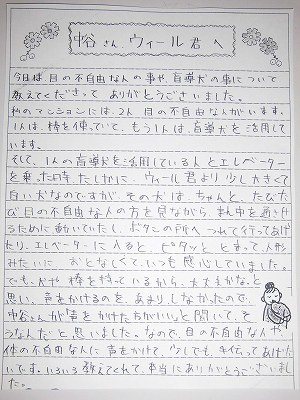 中谷さん、ウィール君へ
今日は、目の不自由な人の事や、盲導犬の事について
教えてくださって ありがとうございました。
私のマンションには、2人 目の不自由な人がいます。
1人は、棒を使っていて、もう1人は、盲導犬を活用して
います。
そして、1人の盲導犬を活用している人とエレベーター
を乗った時、たしかに、ウィール君より少し大きくて
白い犬なのですが、その犬は、ちゃんと、たびた
び目の不自由な人の方を見ながら、まん中を通させ
るために動いていたし、ボタンの所へつれて行ってあげ
たり、エレベーターに入ると、ピタッととまって、人形
みたいに、おとなしくて、いつも感心していました。
でも、犬や棒を持っているから、大丈夫かな、と
思い、声をかけるのを、あまり、しなかったので、
中谷さんが「声をかけた方がいい」と聞いて、そ
うなんだと思いました。なので、目の不自由な人や、
体の不自由な人に声をかけて、少しでも、手伝ってあげた
いです。いろいろ教えてくれて、本当にありがとうございまし
た。